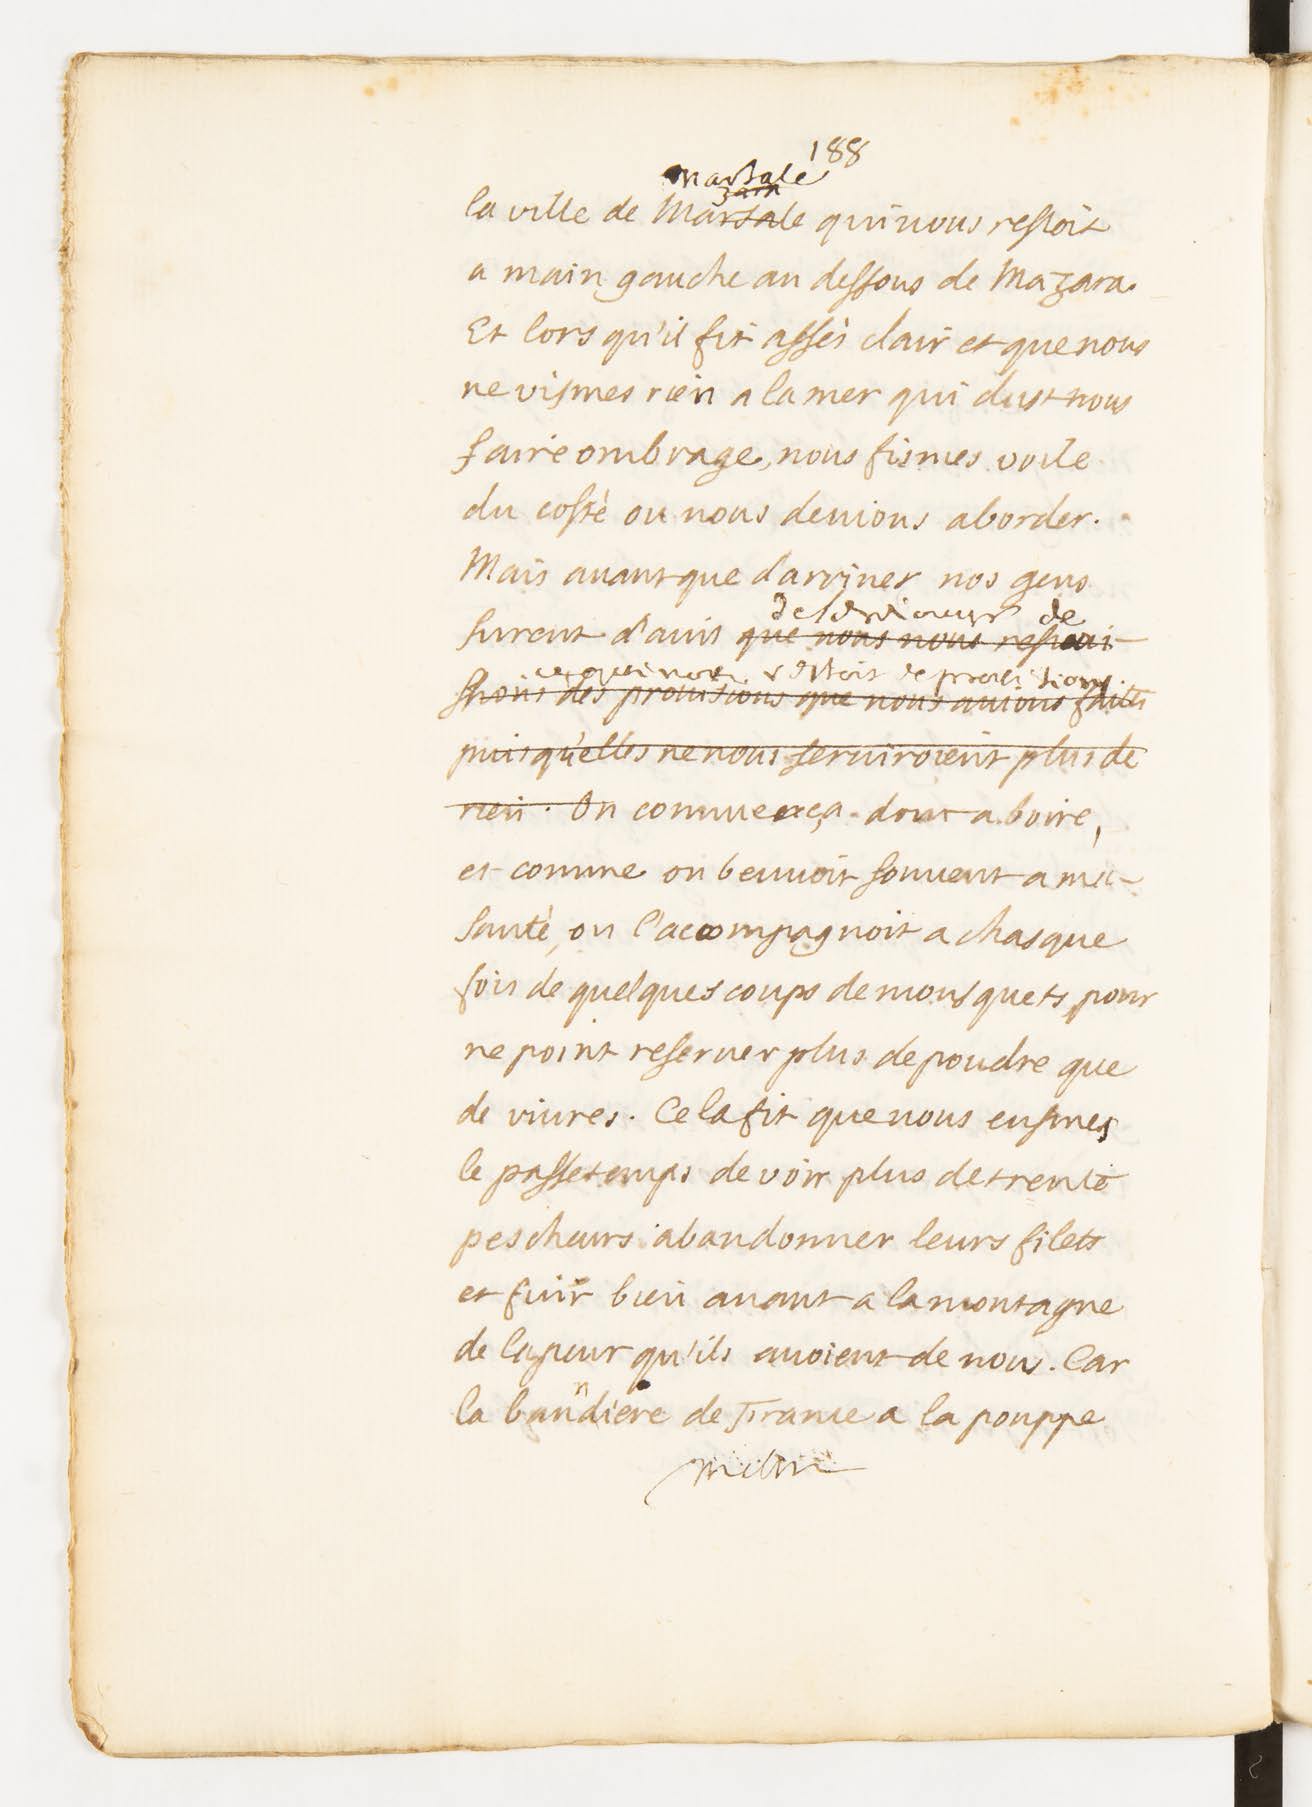 188
Marsale
zara
la ville de Marsale qui nous restoit
a main gauche au dessous de Mazara.
Et lors qu'il fit assès clair et que nous
ne vismes rien a la mer qui dust nous
faire ombrage, nous fismes voile
du costè ou nous deuions aborder.
Mais auant que d'arriuer nos gens
de
furent d'auis que nous nous resioui-
ce qui nous restoit de prouisions.
ssions des prouisions que nous auions faites
puis qu'elles ne nous seruiroient plus de
rien. On commença donc a boire,
et comme on beuuoit souuent a ma
santè, on l'accompagnoit a chasque
fois de quelques coups de mousquets pour
ne point reseruer plus de poudre que
de viures. Cela fit que nous eusmes
le passetemps de voir plus de trente
pescheurs abandonner leurs filets
et fuir bien auant a la montagne
de la peur qu'ils auoient de nous. Car
n
la bandiere de France a la pouppe